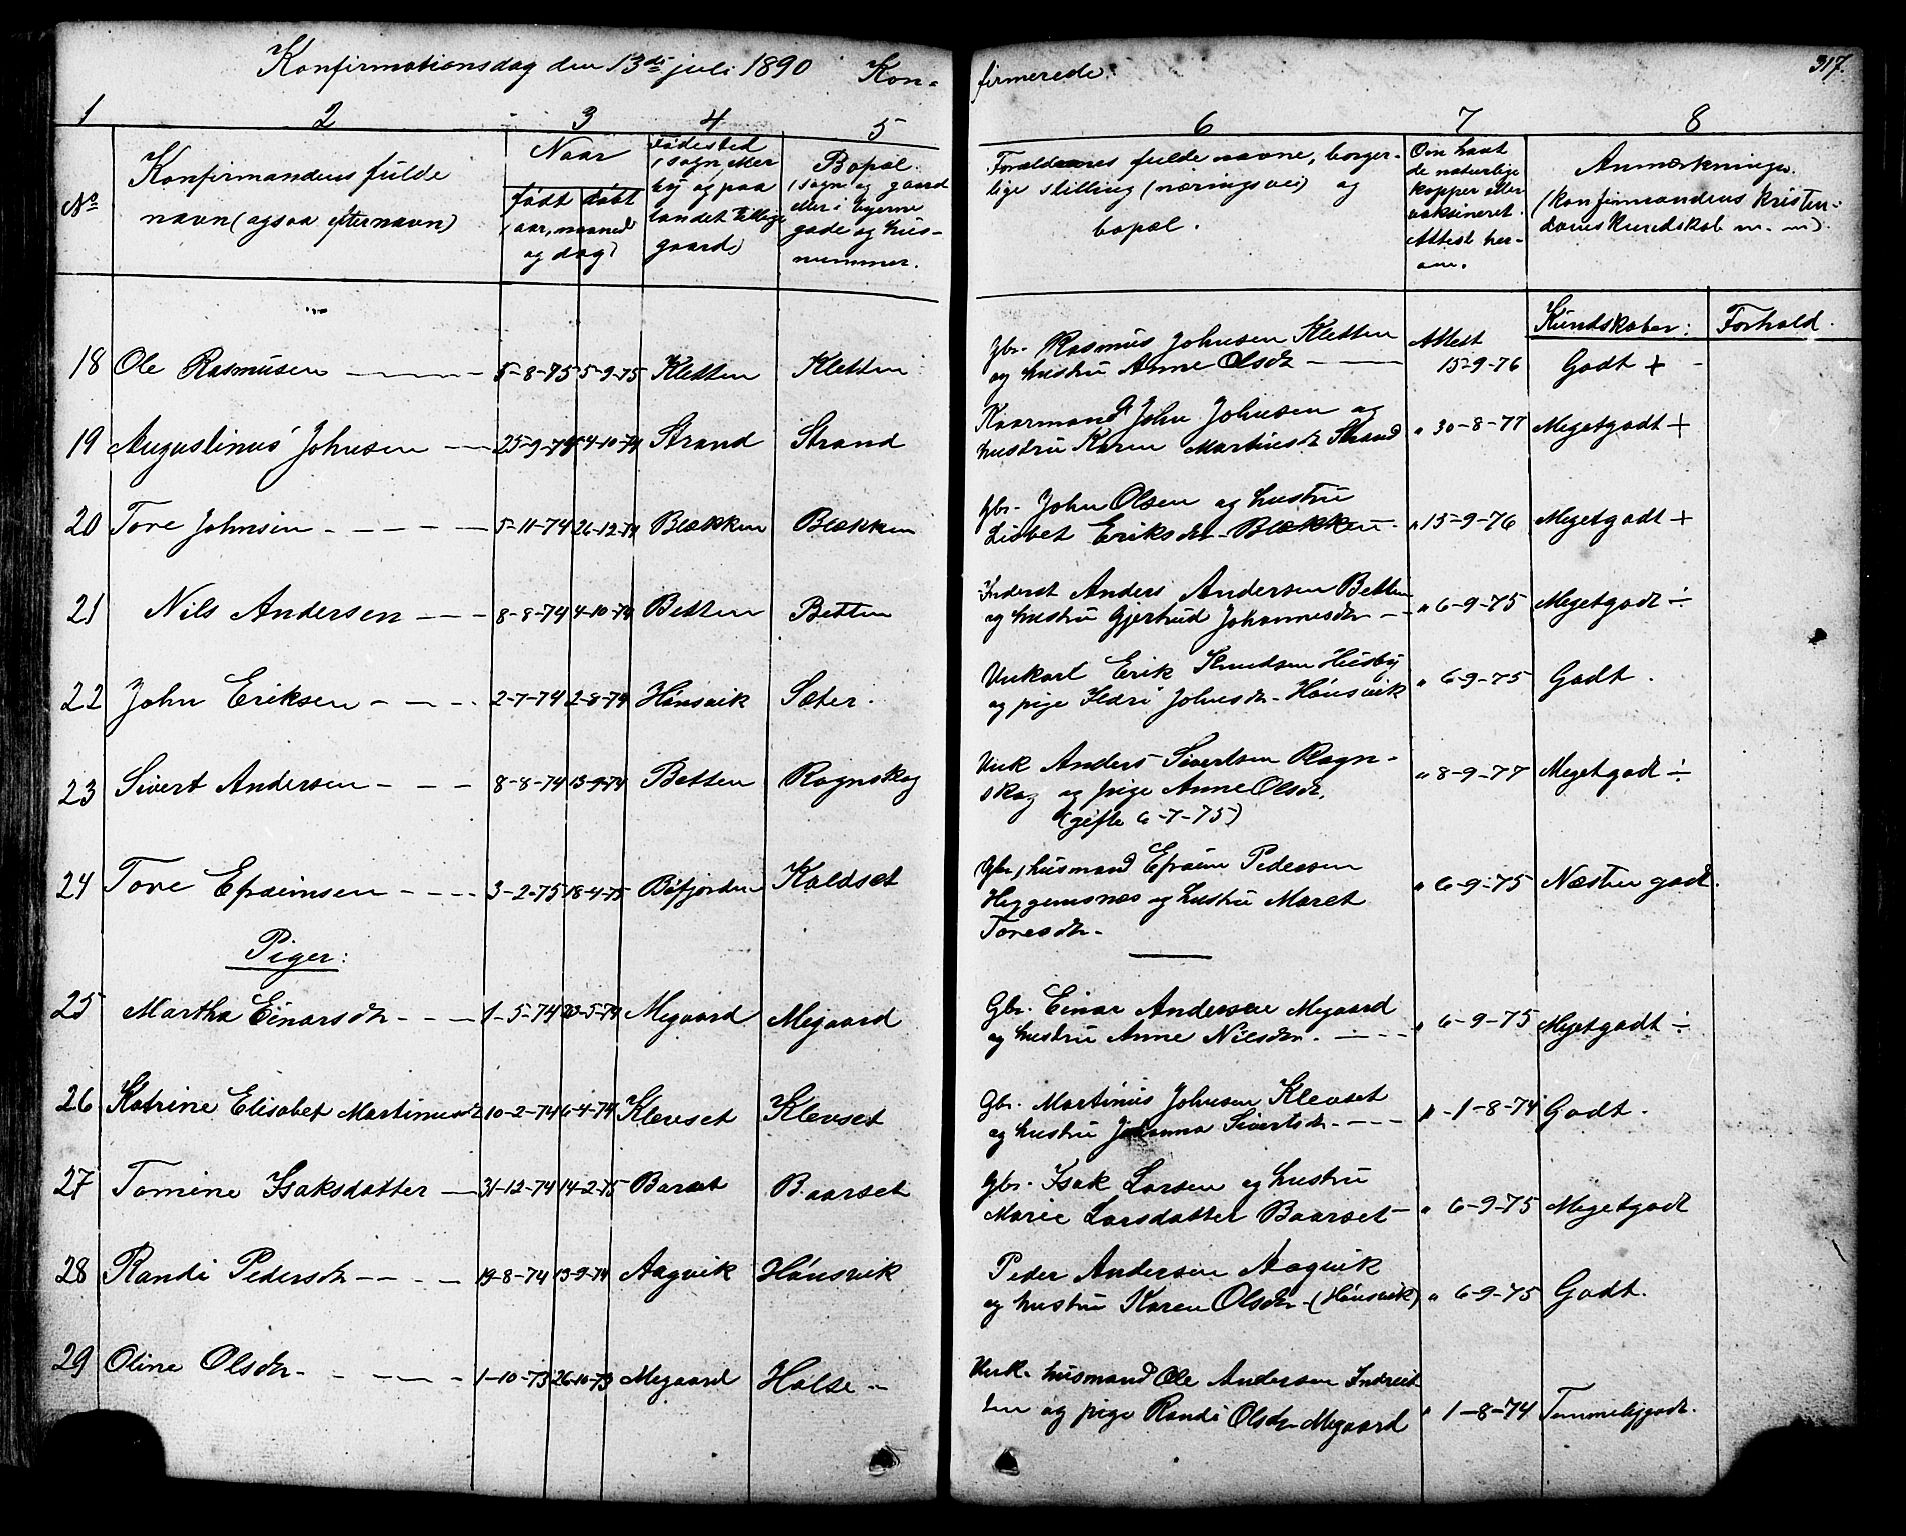 Konfirmationsdag den 13de juli 1890 Kon-
firmerede.
317.
1 2 3 4 5
6 7 8
No
Konfirmandens fulde
navn (ogsaa efternavn)
Naar
født døbt
(aar, maaned
og dag)
Fødested
(sogn, eller
by og paa
landet tillige
gaard)
Bopæl
(sogn og gaard
eller i byerne
gade og hus-
nummer.
Forældrenes fulde navne, borger-
lige stilling (næringsvei) og
bopæl.
Om havt
de naturlige
kopper eller
vaksineret.
Attest her-
om.
Anmærkninger.
(konfirmandens kristen-
domskundskab m. m).
Kundskaber: Forhold.
18 Ole Rasmusen 5-8-75 5-9-75 Kletten Kletten
Gbr. Rasmus Johnsen Kletten
og hustru Anne Olsdr
Attest
15-9-76 Godt +
19 Augustinus Johnsen 25-9-74 4-10-74 Strand Strand
Kaarmand John Johnsen og
hustru Karen Martinsdr Strand
" 30-8-77 Megetgodt +
20 Tore Johnsen 5-11-74 26-12-74 Blækken Blækken
Gbr. John Olsen og hustru
Lisbet Eriksdr. Blækken
" 15-9-76 Megetgodt +
21 Nils Andersen 8-8-74 4-10-74 Betten Betten
Inderst Anders Andersen Betten
og hustru Gjertrud Johannesdr
" 6-9-75 Megetgodt ÷
22 John Eriksen 2-7-74 2-8-74 Hønsvik Sæter.
Unkarl Erik Knudsen Husby
og pige Ildri Johnsdr. Hønsvik
" 6-9-75 Godt.
23 Sivert Andersen 8-8-74 13-9-74 Betten Rognskog
Unk Anders Sivertsen Rogn-
skog og pige Anne Olsdr.
(gifte 6-7-75)
" 8-9-77 Megetgodt ÷
24 Tore Efraimsen 3-2-75 18-4-75 Bøfjorden Kaldset
Gbr, husmand Efraim Pedersen
Heggemsnæs og hustru Maret
Toresdr.
" 6-9-75 Næsten godt.
Piger:
25 Martha Einarsdr. 1-5-74 30-5-74 Megaard Megaard
Gbr. Einar Andersen Megaard
og hustru Anne Nilsdr.
" 6-9-75 Megetgodt ÷
26 Katrine Elisabet Martinusdr 10-2-74 6-4-74 Klevset Klevset
Gbr. Martinus Johnsen Klevset
og hustru Johanna Sivertsdr.
" 1-8-74 Godt.
27 Tomine Isaksdatter 31-12-74 14-2-75 Baraet Baarset
Gbr. Isak Larsen og hustru
Marie Larsdatter Baarset
" 6-9-75 Megetgodt
28 Randi Pedersdr 19-8-74 13-9-74 Aagvik Hønsvik
Peder Andersen Aagvik
og hustru Karen Olsdr. (Hønsvik)
" 6-9-75 Godt.
29 Oline Olsdr. 1-10-73 26-10-73 Megaard Halse
Unk. husmand Ole Andersen Indreit
len og pige Randi Olsdr Megaard
" 1-8-74 Temmeliggodt.